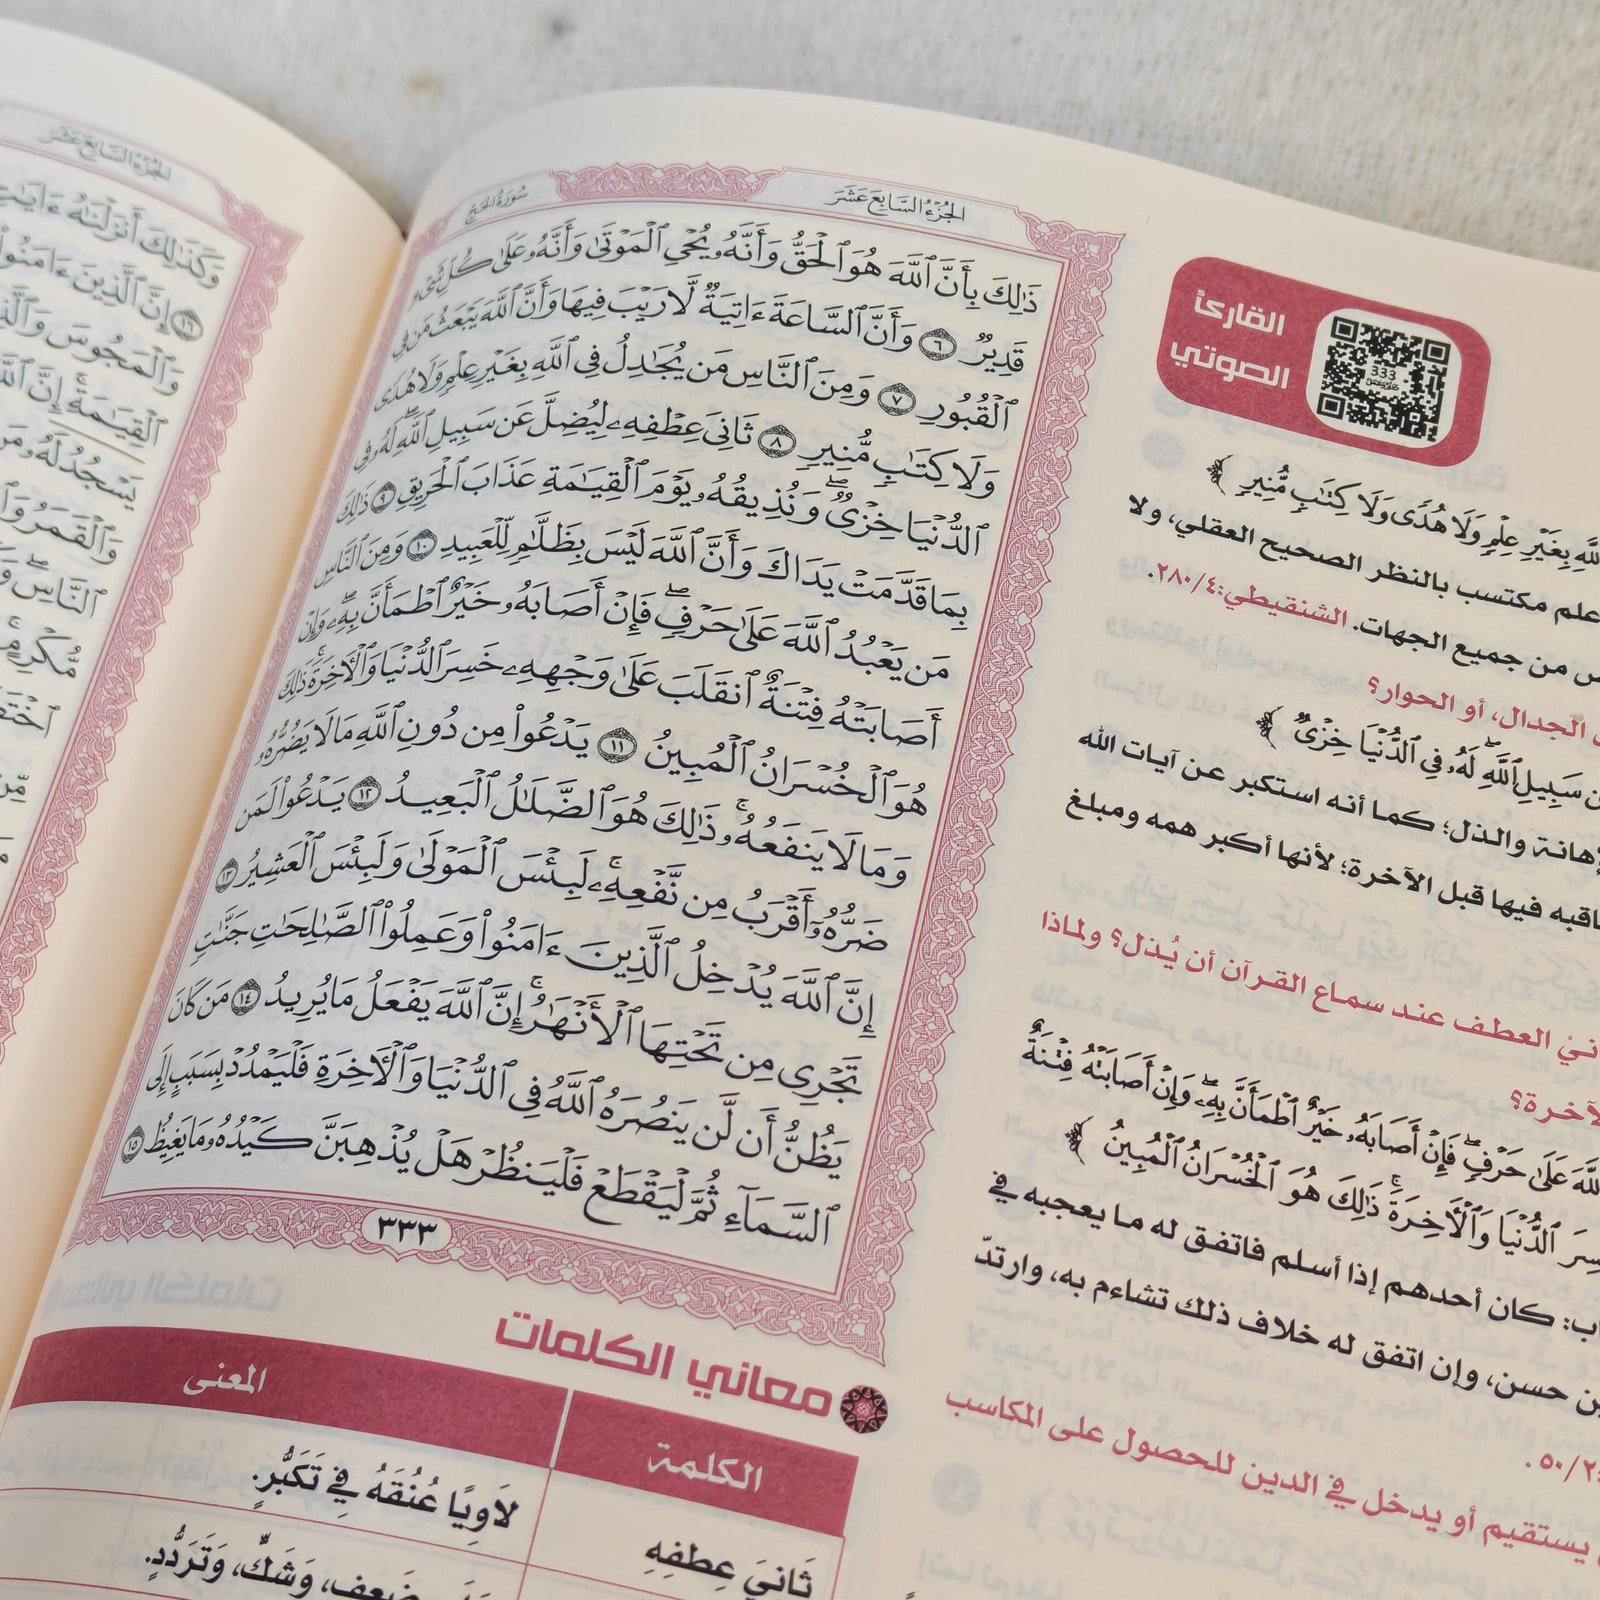 سُورَةُ الحَجّ
الجُزْءُ السَّابِعَ عَشَرَ
ذَٰلِكَ بِأَنَّ ٱللَّهَ هُوَ ٱلْحَقُّ وَأَنَّهُۥ يُحْىِ ٱلْمَوْتَىٰ وَأَنَّهُۥ عَلَىٰ كُلِّ شَىْءٍ
قَدِيرٌ ٦ وَأَنَّ ٱلسَّاعَةَ ءَاتِيَةٌ لَّا رَيْبَ فِيهَا وَأَنَّ ٱللَّهَ يَبْعَثُ مَن فِى
ٱلْقُبُورِ ٧ وَمِنَ ٱلنَّاسِ مَن يُجَٰدِلُ فِى ٱللَّهِ بِغَيْرِ عِلْمٍ وَلَا هُدًى
وَلَا كِتَٰبٍ مُّنِيرٍ ٨ ثَانِىَ عِطْفِهِۦ لِيُضِلَّ عَن سَبِيلِ ٱللَّهِ ۖ لَهُۥ فِى
ٱلدُّنْيَا خِزْىٌ ۖ وَنُذِيقُهُۥ يَوْمَ ٱلْقِيَٰمَةِ عَذَابَ ٱلْحَرِيقِ ٩ ذَٰلِكَ
بِمَا قَدَّمَتْ يَدَاكَ وَأَنَّ ٱللَّهَ لَيْسَ بِظَلَّٰمٍ لِّلْعَبِيدِ ١٠ وَمِنَ ٱلنَّاسِ
مَن يَعْبُدُ ٱللَّهَ عَلَىٰ حَرْفٍ ۖ فَإِنْ أَصَابَهُۥ خَيْرٌ ٱطْمَأَنَّ بِهِۦ ۖ وَإِنْ
أَصَابَتْهُ فِتْنَةٌ ٱنقَلَبَ عَلَىٰ وَجْهِهِۦ خَسِرَ ٱلدُّنْيَا وَٱلْءَاخِرَةَ ۚ ذَٰلِكَ
هُوَ ٱلْخُسْرَانُ ٱلْمُبِينُ ١١ يَدْعُوا۟ مِن دُونِ ٱللَّهِ مَا لَا يَضُرُّهُۥ
وَمَا لَا يَنفَعُهُۥ ۚ ذَٰلِكَ هُوَ ٱلضَّلَٰلُ ٱلْبَعِيدُ ١٢ يَدْعُوا۟ لَمَن
ضَرُّهُۥٓ أَقْرَبُ مِن نَّفْعِهِۦ ۚ لَبِئْسَ ٱلْمَوْلَىٰ وَلَبِئْسَ ٱلْعَشِيرُ ١٣
إِنَّ ٱللَّهَ يُدْخِلُ ٱلَّذِينَ ءَامَنُوا۟ وَعَمِلُوا۟ ٱلصَّٰلِحَٰتِ جَنَّٰتٍ
تَجْرِى مِن تَحْتِهَا ٱلْأَنْهَٰرُ ۚ إِنَّ ٱللَّهَ يَفْعَلُ مَا يُرِيدُ ١٤ مَن كَانَ
يَظُنُّ أَن لَّن يَنصُرَهُ ٱللَّهُ فِى ٱلدُّنْيَا وَٱلْءَاخِرَةِ فَلْيَمْدُدْ بِسَبَبٍ إِلَى
ٱلسَّمَآءِ ثُمَّ لْيَقْطَعْ فَلْيَنظُرْ هَلْ يُذْهِبَنَّ كَيْدُهُۥ مَا يَغِيظُ ١٥
٣٣٣
معاني الكلمات
الكلمة المعنى
ثَانِيَ عِطْفِهِ لَاوِيًا عُنُقَهُ فِي تَكَبُّرٍ.
ضَعفٍ، وَشَكٍّ، وَتَرَدُّدٍ.
القارئ
الصوتي
333
بِغَيْرِ عِلْمٍ وَلَا هُدًى وَلَا كِتَٰبٍ مُّنِيرٍ ﴾
علم مكتسب بالنظر الصحيح العقلي، ولا
من جميع الجهات. الشنقيطي:٢٨٠/٤.
الجدال، أو الحوار؟
سَبِيلِ ٱللَّهِ ۖ لَهُۥ فِى ٱلدُّنْيَا خِزْىٌ ﴾
والذل؛ كما أنه استكبر عن آيات الله
فيها قبل الآخرة؛ لأنها أكبر همه ومبلغ
العطف عند سماع القرآن أن يُذل؟ ولماذا
عَلَىٰ حَرْفٍ ۖ فَإِنْ أَصَابَهُۥ خَيْرٌ ٱطْمَأَنَّ بِهِۦ ۖ وَإِنْ أَصَابَتْهُ فِتْنَةٌ
ٱلدُّنْيَا وَٱلْءَاخِرَةَ ۚ ذَٰلِكَ هُوَ ٱلْخُسْرَانُ ٱلْمُبِينُ ﴾
كان أحدهم إذا أسلم فاتفق له ما يعجبه في
حسن، وإن اتفق له خلاف ذلك تشاءم به، وارتدّ
يستقيم أو يدخل في الدين للحصول على المكاسب
الجُزْءُ السَّابِعَ عَشَرَ
وَكَذَٰلِكَ أَنزَلْنَٰهُ ءَايَٰتٍ
١٦ إِنَّ ٱلَّذِينَ ءَامَنُوا۟
وَٱلْمَجُوسَ
ٱلْقِيَٰمَةِ ۚ إِنَّ
يَسْجُدُ لَهُۥ
وَٱلْقَمَرُ
ٱلنَّاسِ ۖ
مُّكْرِمٍ ۚ